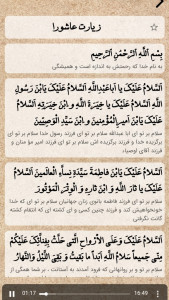 زیارت عاشورا
بِسْمِ اللَّهِ الرَّحْمَنِ الرَّحِيمِ
به نام خدا که رحمتش بی اندازه است و همیشگی
اَلسَّلامُ عَلَيْكَ يَا اَبا عَبْدِاللَّهِ اَلسَّلامُ عَلَيْكَ يَابْنَ رَسُولِ
اللَّهِ اَلسَّلامُ عَلَيْكَ يا خِيَرَةَ اللَّهِ و َابْنَ خِيَرَتِهِ اَلسَّلامُ
عَلَيْكَ يَابْنَ اَميرِ الْمُؤْمِنينَ و َابْنَ سَيِّدِ الْوَصِيّينَ
سلام بر تو ای ابا عبدالله سلام بر تو ای فرزند رسول خدا سلام بر تو ای
برگزیده خدا و فرزند برگزیده اش سلام بر تو ای فرزند امیر مؤ منان و
فرزند آقای اوصیاء
اَلسَّلامُ عَلَيْكَ يَابْنَ فاطِمَةَ سَيِّدَةِ نِساَّءِ الْعالَمينَ اَلسَّلامُ
عَلَيْكَ يا ثارَ اللَّهِ و َابْنَ ثارِهِ وَ الْوِتْرَ الْمَوْتُورَ
سلام بر تو ای فرزند فاطمه بانوی زنان جهانیان سلام بر تو ای که خدا
خونخواهیش کند و فرزند چنین کسی و ای کشته ای که انتقام کشته
گانت نگرفتی
اَلسَّلامُ عَلَيْكَ وَعَلَى الاَْرْواحِ الَّتى حَلَّتْ بِفِناَّئِكَ عَلَيْكُمْ
مِنّى جَميعاً سَلامُ اللَّهِ اَبَداً ما بَقيتُ وَ بَقِىَ اللَّيْلُ وَ النَّهارُ
سلام بر تو و بر روانهایی که فرود آمدند به آستانت ، بر شما همگی از
01:17
16:49